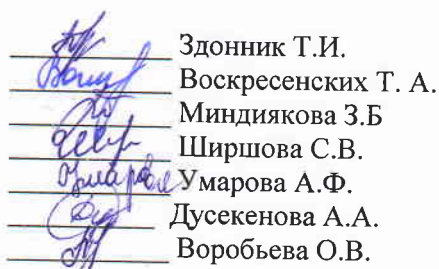 Здонник Т.И.
Воскресенских Т. А.
Миндиякова З.Б
Ширшова С.В.
Умарова А.Ф.
Дусекенова А.А.
Воробьева О.В.